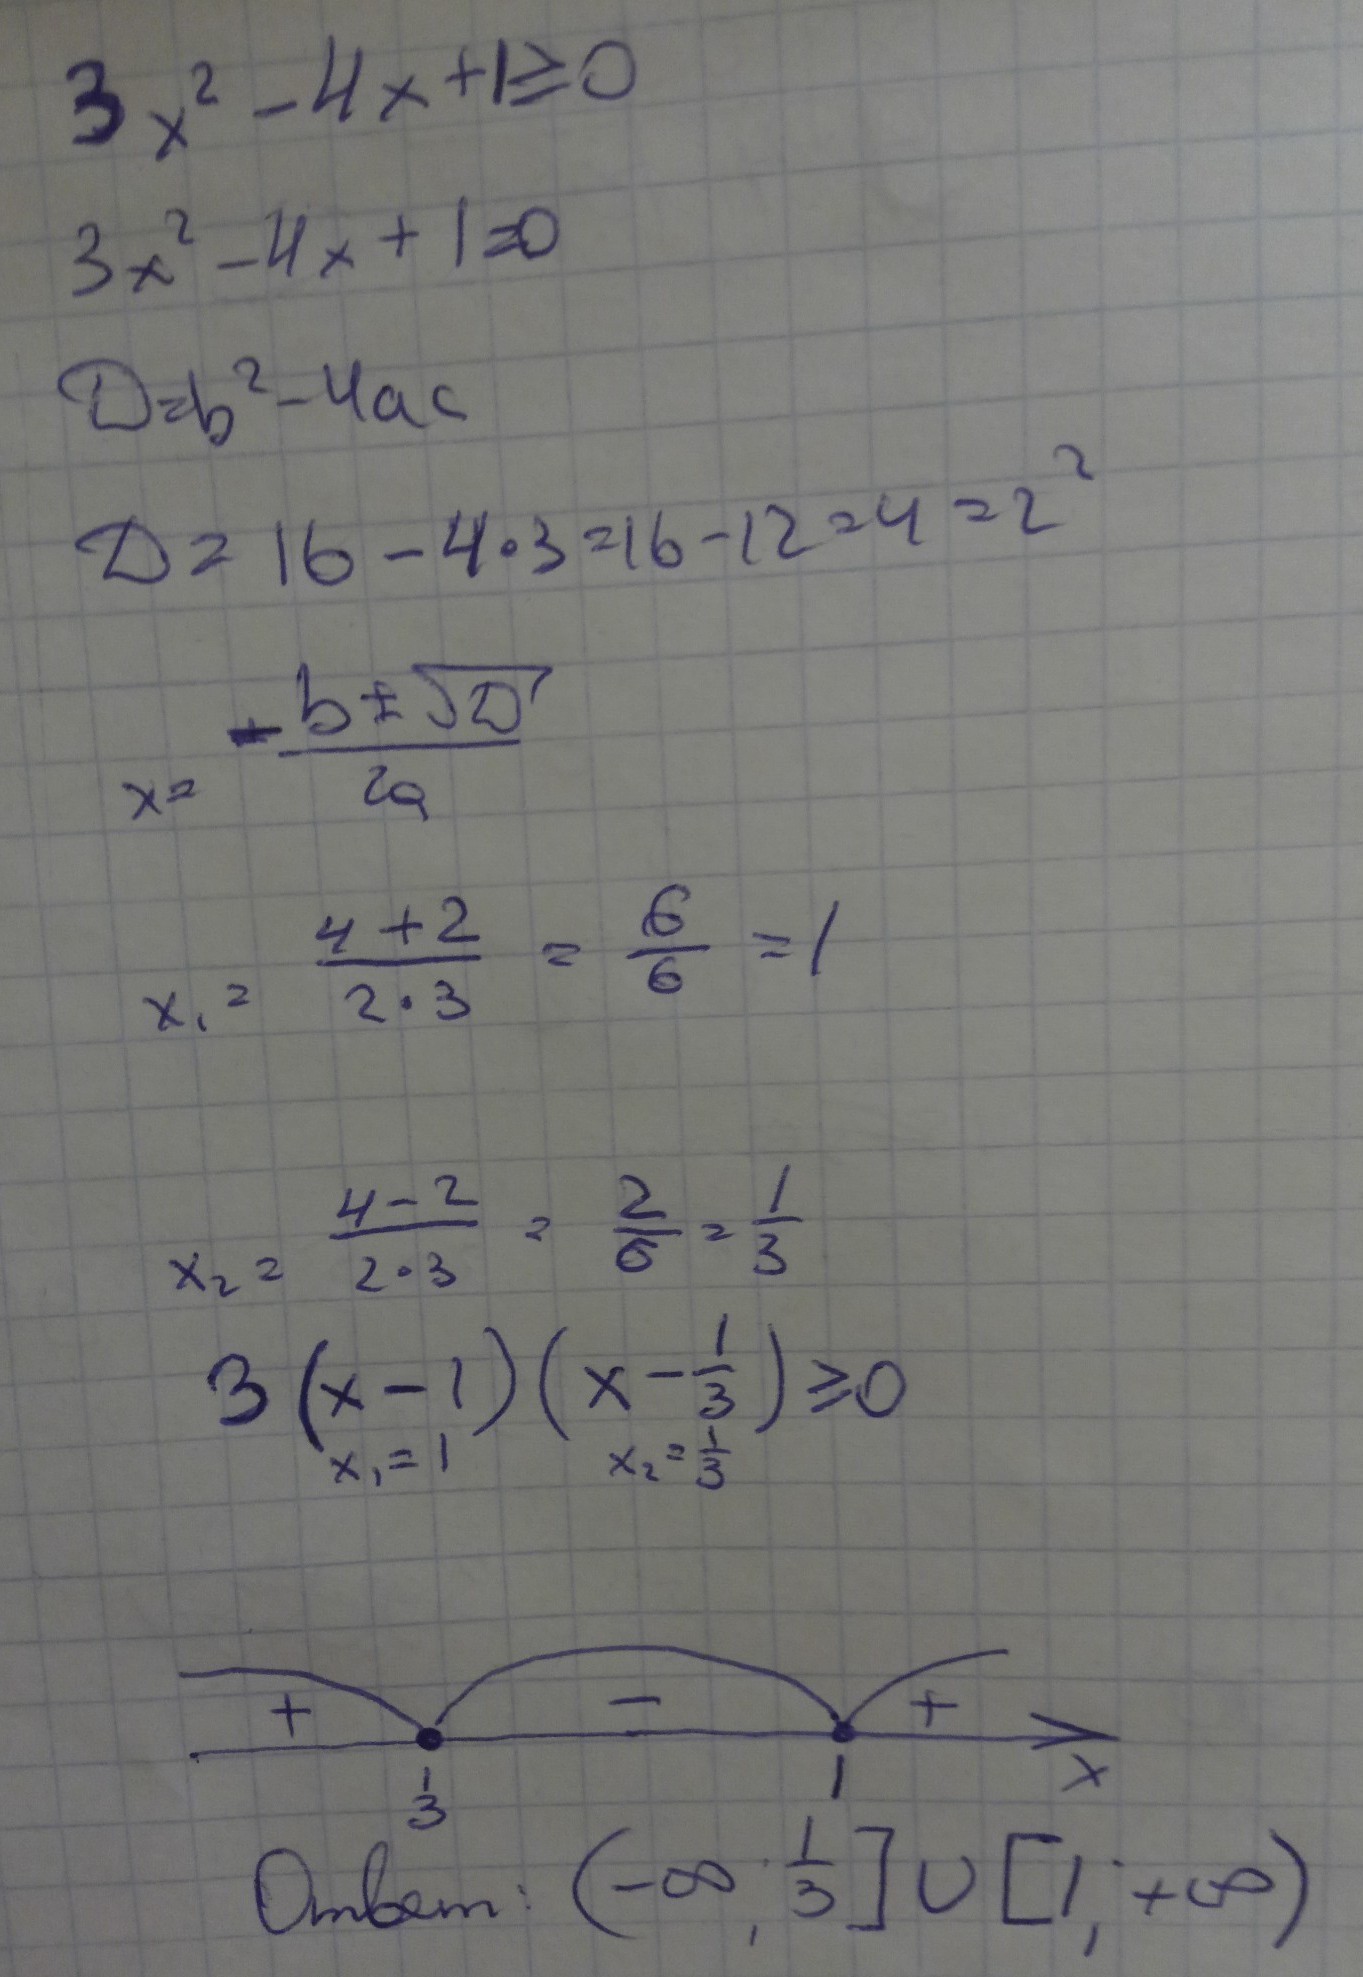 3x² - 4x + 1 ≥ 0
3x² - 4x + 1 = 0
D = b² - 4ac
D = 16 - 4·3 = 16 - 12 = 4 = 2²
x = (-b ± √D)/(2a)
x₁ = (4 + 2)/(2·3) = 6/6 = 1
x₂ = (4 - 2)/(2·3) = 2/6 = 1/3
3(x - 1)(x - 1/3) ≥ 0
x₁ = 1 x₂ = 1/3
+ - +
1/3 1 x
Ответ: (-∞; 1/3] ∪ [1; +∞)